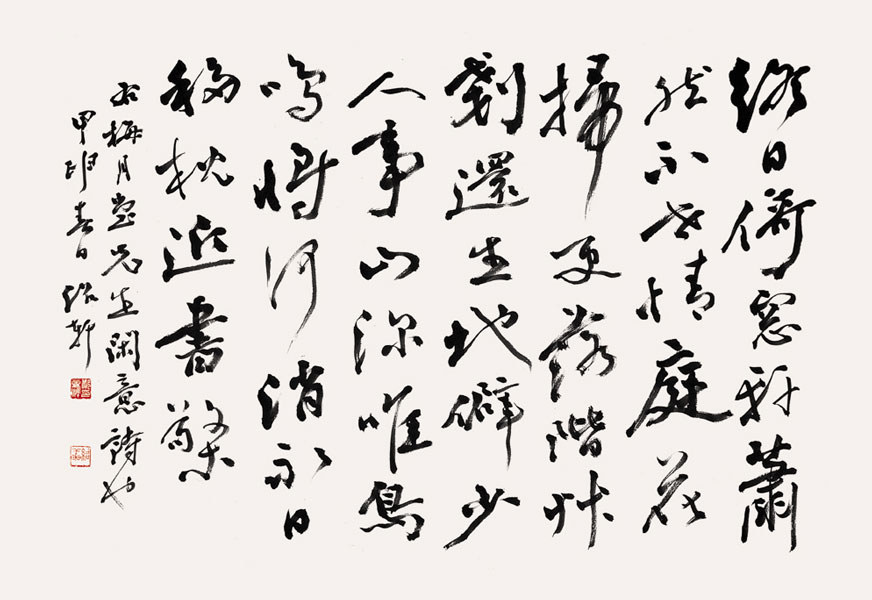 終日倚窓軒蕭
然不世情庭花
掃更落階艸
剗還生地僻少
人事山深唯鳥
鳴將何消永日
移枕近書檠
右梅月堂先生閑意詩也
甲申春日 軒